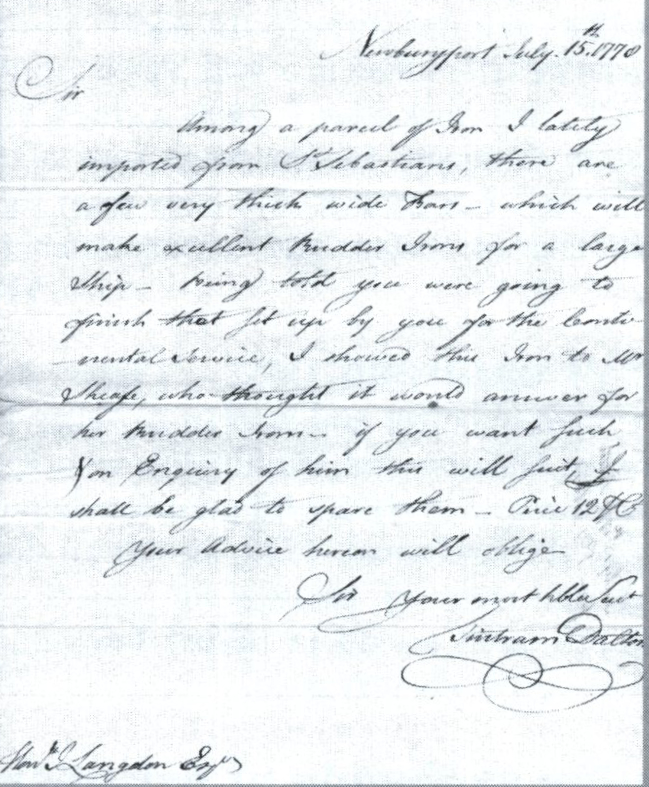 Newburyport July. 15th. 1778
Sir
Among a parcel of Iron I lately
imported from St Sebastians, there are
a few very thick wide Bars – which will
make excellent Rudder Irons for a large
Ship – being told you were going to
finish that set up by you for the Conti-
-nental Service, I showed this Iron to Mr
Sheafe, who thought it would answer for
her Rudder Irons – if you want such
& on Enquiry of him this will suit, I
shall be glad to spare them – Price 12
Your Advice hereon will oblige
Sir your most hble Servt
Tristram Dalton
Honl J Langdon Esqr